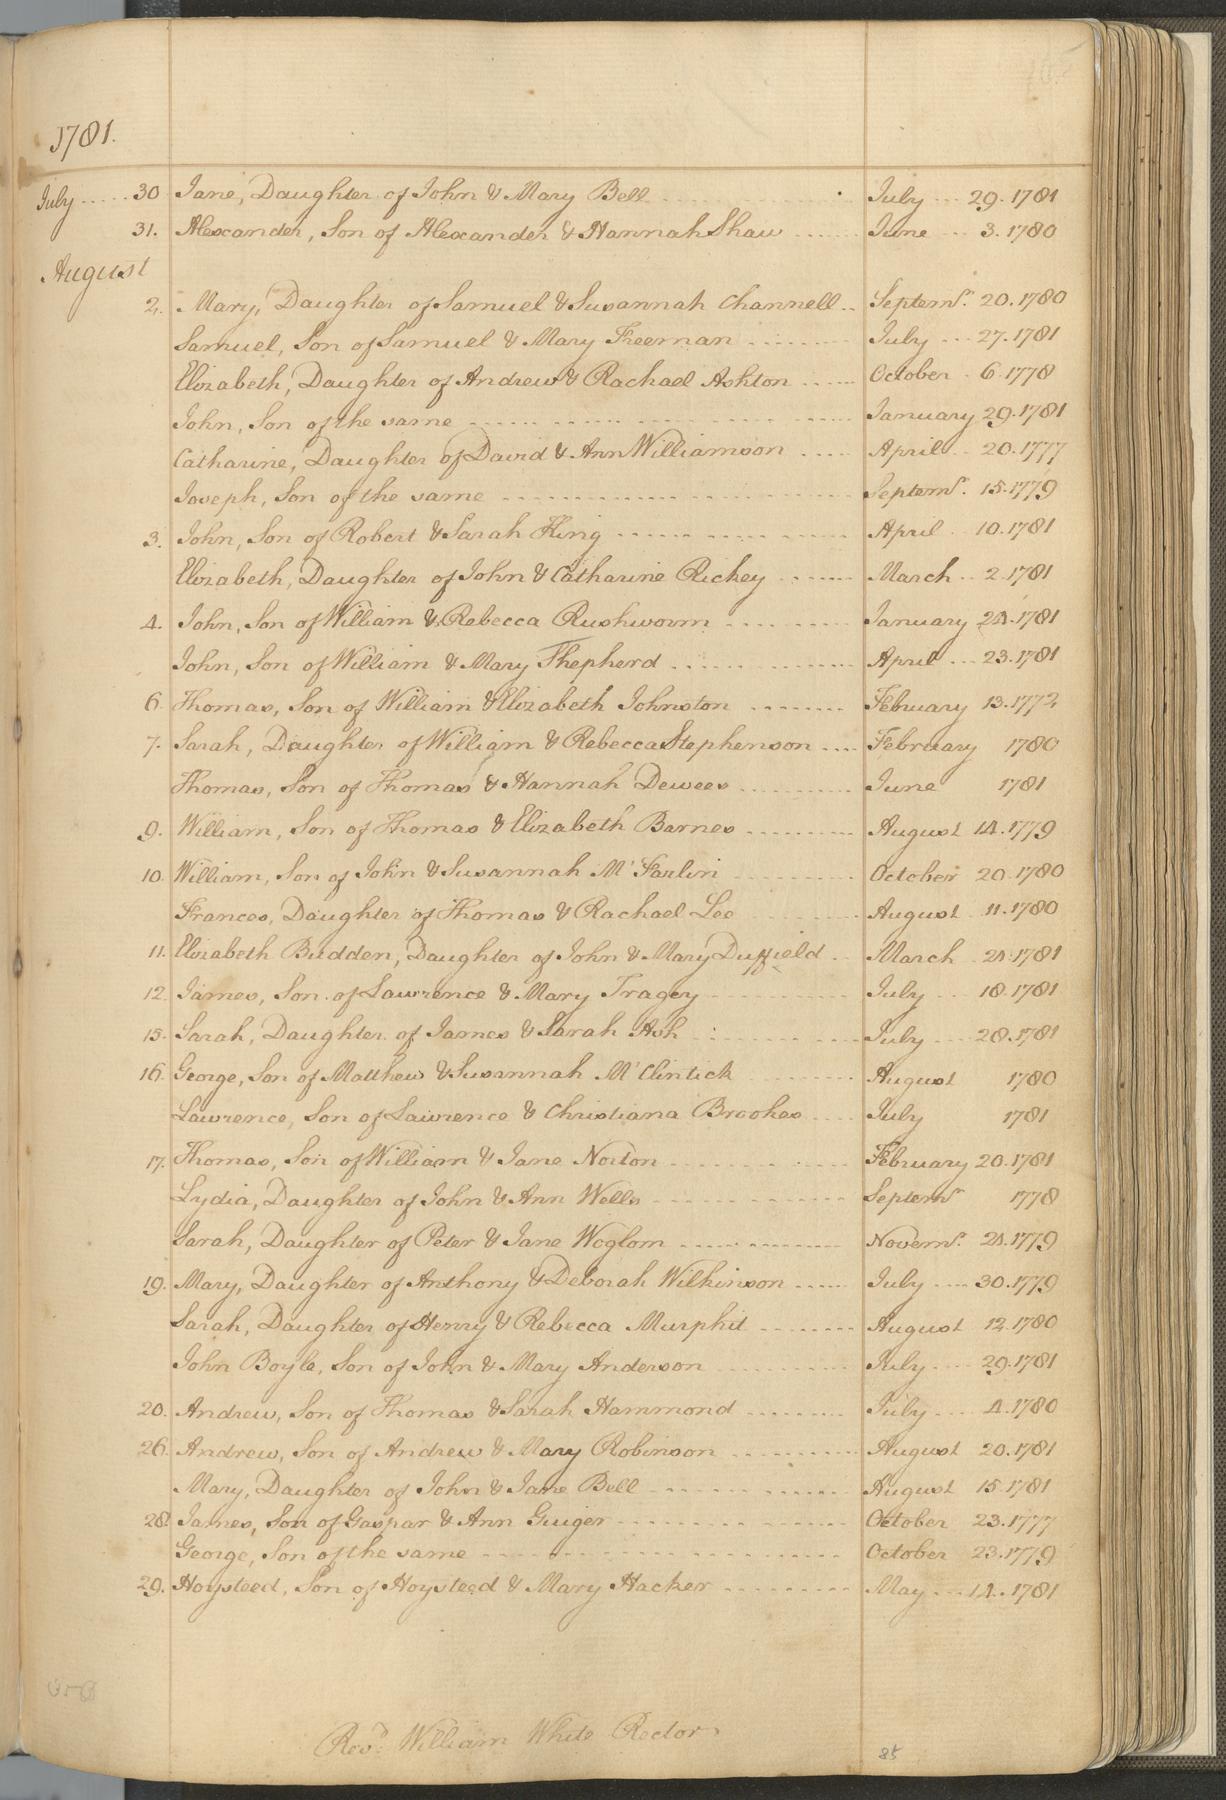 1781.
July ..... 30 Jane, Daughter of John & Mary Bell July ... 29. 1781
31. Alexander, Son of Alexander & Hannah Shaw ...... June ... 3. 1780
August
2. Mary, Daughter of Samuel & Susannah Channell .. Septemr. 20. 1780
Samuel, Son of Samuel & Mary Freeman ........ July ... 27. 1781
Elizabeth, Daughter of Andrew & Rachael Ashton ...... October . 6. 1778
John, Son of the same ........ January 29. 1781
Catharine, Daughter of David & Ann Williamson .... April .. 20. 1777
Joseph, Son of the same ........ Septemr. 15. 1779
3. John, Son of Robert & Sarah King ........ April . 10. 1781
Elizabeth, Daughter of John & Catharine Richey ....... March .. 2. 1781
4. John, Son of William & Rebecca Rushworm ......... January 24. 1781
John, Son of William & Mary Shepherd ........ April ... 23. 1781
6. Thomas, Son of William & Elizabeth Johnston ........ February 13. 1772
7. Sarah, Daughter of William & Rebecca Stephenson .... February 1780
Thomas, Son of Thomas & Hannah Dewees ......... June 1781
9. William, Son of Thomas & Elizabeth Barnes ......... August 14. 1779
10. William, Son of John & Susannah Mc Farlin ........ October 20. 1780
Frances, Daughter of Thomas & Rachael Lee ........ August 11. 1780
11. Elizabeth Budden, Daughter of John & Mary Duffield .. March 24. 1781
12. James, Son of Lawrence & Mary Tragey ........ July ... 18. 1781
15. Sarah, Daughter of James & Sarah Ash ........ July .... 28. 1781
16. George, Son of Matthew & Susannah Mc Clintick ........ August 1780
Lawrence, Son of Lawrence & Christiana Brookes .... July 1781
17. Thomas, Son of William & Jane Norton ........ February 20. 1781
Lydia, Daughter of John & Ann Wells ........ Septemr 1778
Sarah, Daughter of Peter & Jane Woglom ........ Novemr. 24. 1779
19. Mary, Daughter of Anthony & Deborah Wilkinson ...... July .... 30. 1779
Sarah, Daughter of Henry & Rebecca Murphit ........ August 12. 1780
John Boyle, Son of John & Mary Anderson ........ July .... 29. 1781
20. Andrew, Son of Thomas & Sarah Hammond ........ July .... 4. 1780
26. Andrew, Son of Andrew & Mary Robinson ........ August 20. 1781
Mary, Daughter of John & Jane Bell ........ August 15. 1781
28. James, Son of Gaspar & Ann Guiger ........ October 23. 1777
George, Son of the same ........ October 23. 1779
29. Hoysteed, Son of Hoysteed & Mary Hacker ........ May ... 14. 1781
Revd. William White Rector
85